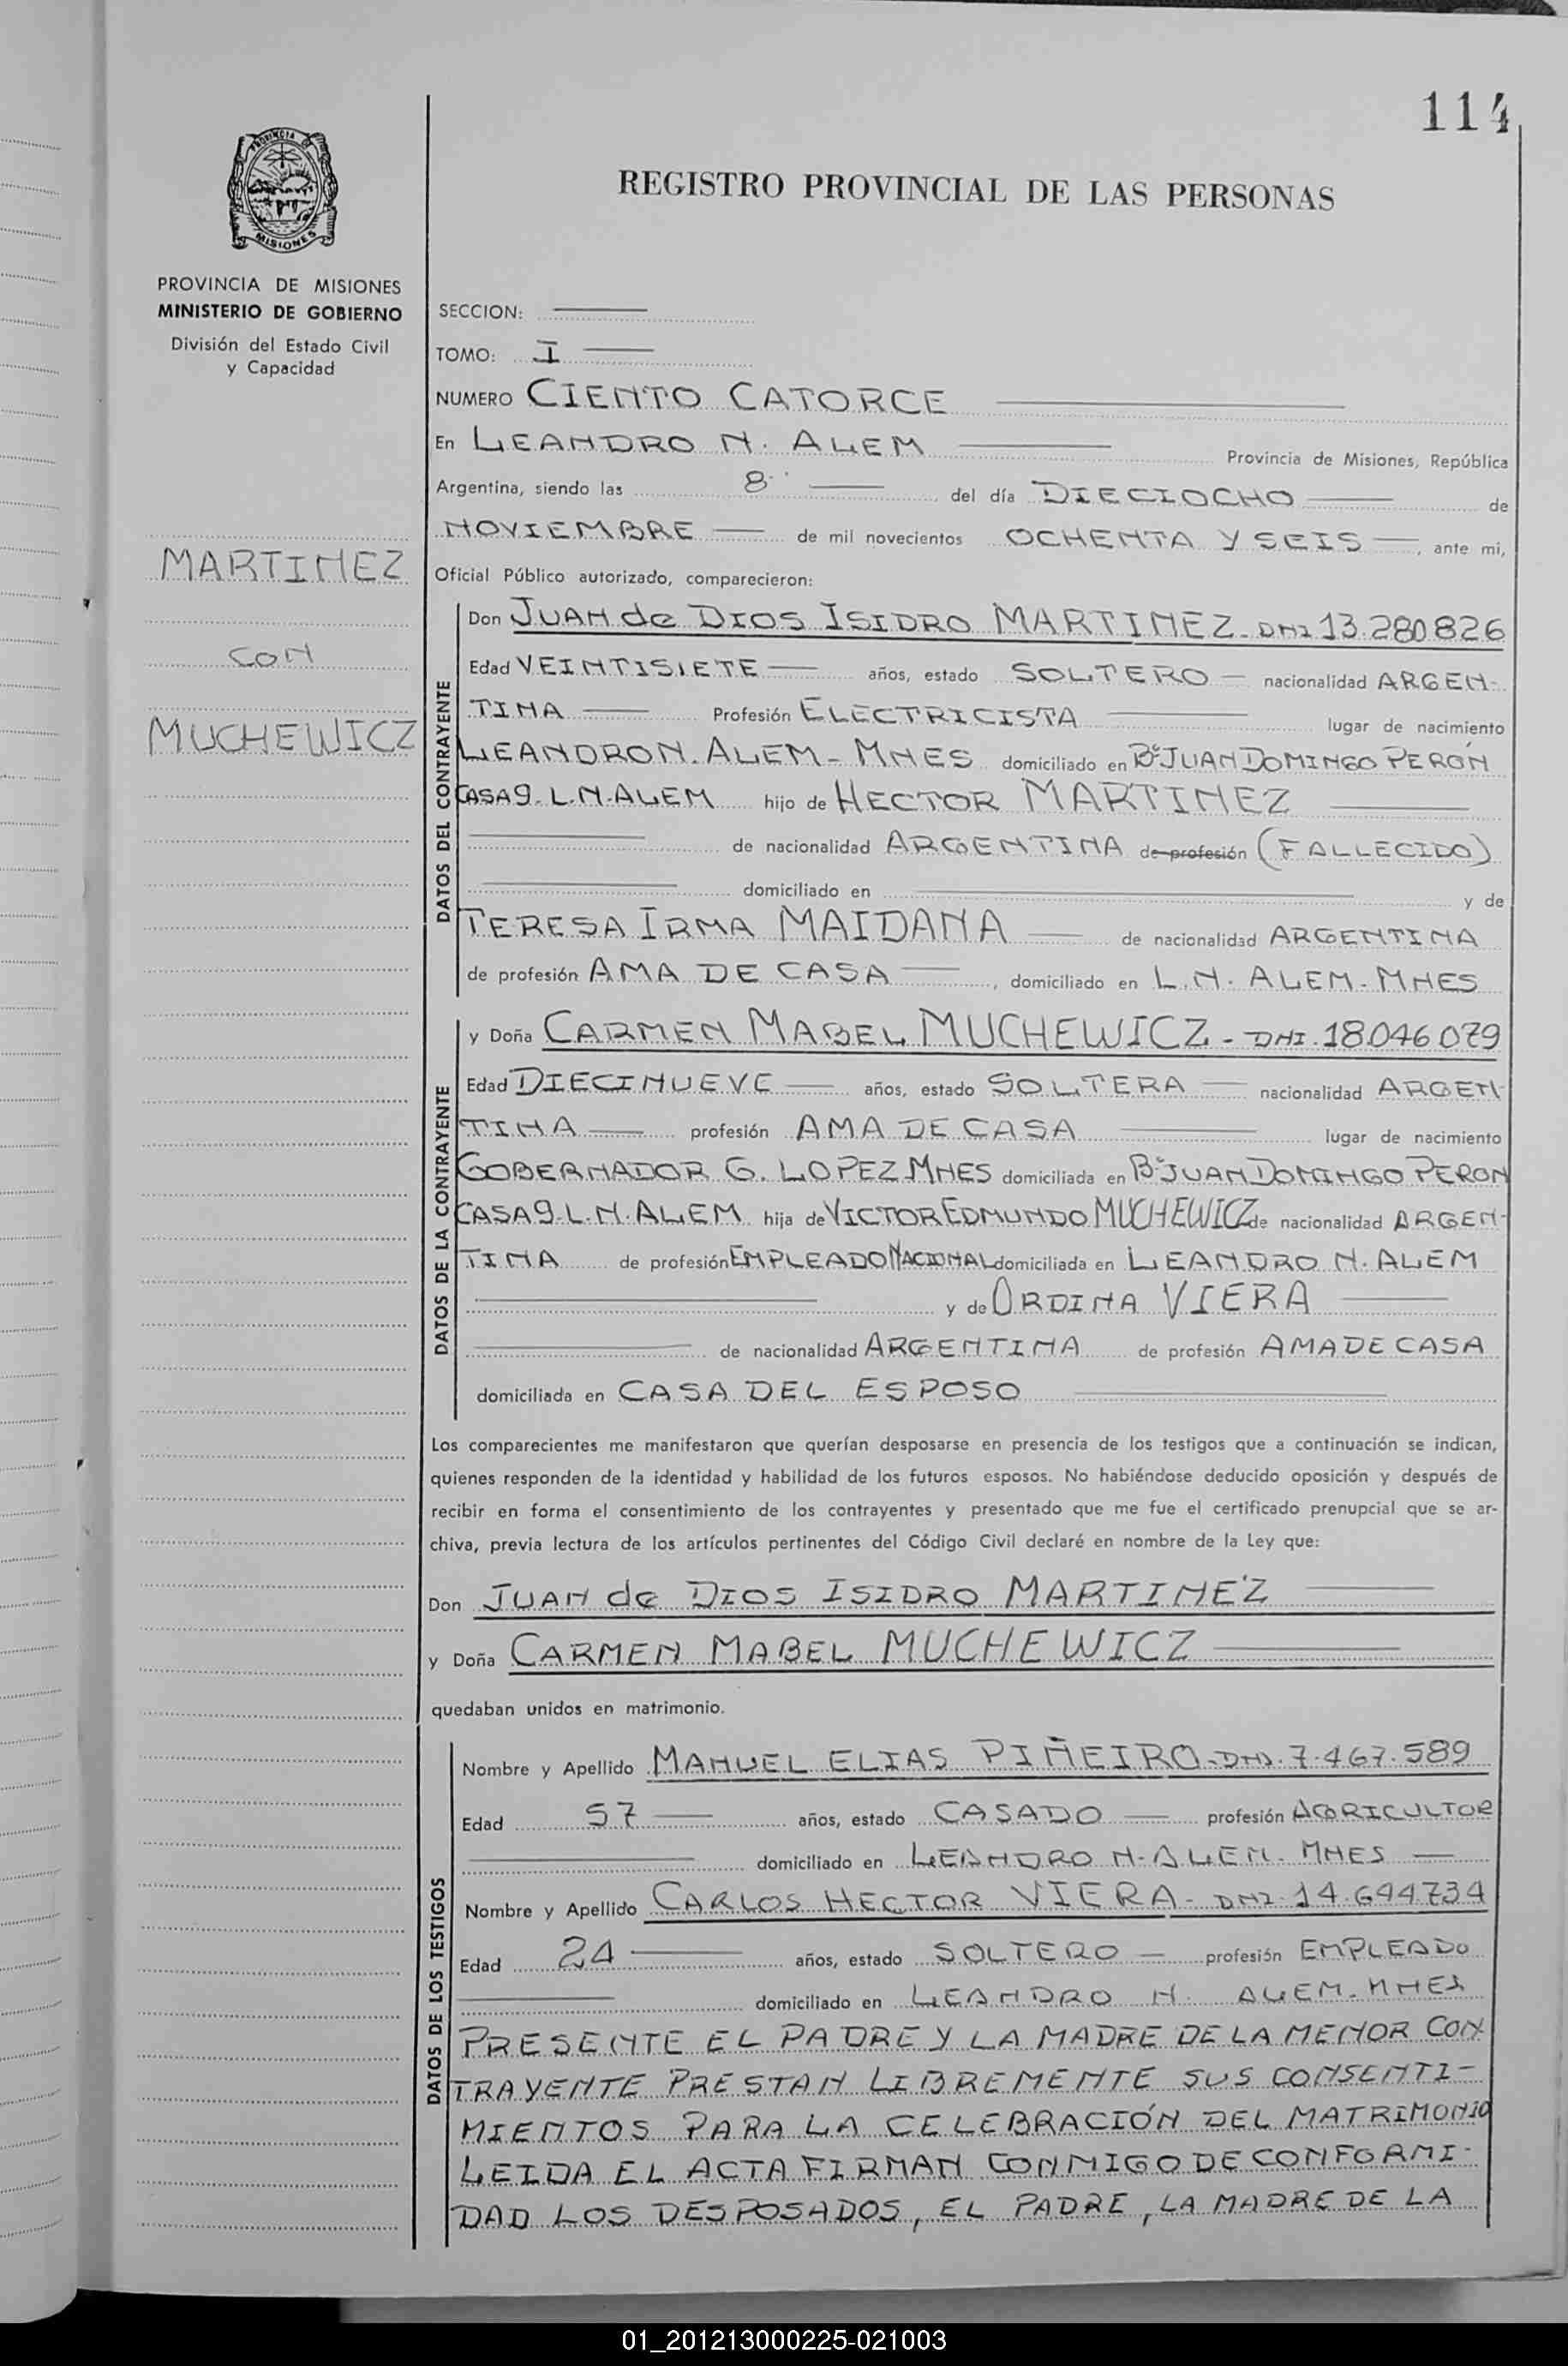 114
PROVINCIA DE
MISIONES
REGISTRO PROVINCIAL DE LAS PERSONAS
PROVINCIA DE MISIONES
MINISTERIO DE GOBIERNO
División del Estado Civil
y Capacidad
MARTINEZ
CON
MUCHEWICZ
SECCION:
TOMO: I
NUMERO CIENTO CATORCE
En LEANDRO N. ALEM Provincia de Misiones, República
Argentina, siendo las 8 del día DIECIOCHO de
NOVIEMBRE de mil novecientos OCHENTA Y SEIS, ante mi,
Oficial Público autorizado, comparecieron:
DATOS DEL CONTRAYENTE
Don JUAN de DIOS ISIDRO MARTINEZ - DNI 13.280826
Edad VEINTISIETE años, estado SOLTERO nacionalidad ARGEN-
TINA Profesión ELECTRICISTA lugar de nacimiento
LEANDRO N. ALEM - MNES domiciliado en Bº JUAN DOMINGO PERÓN
CASA 9. L.N. ALEM hijo de HECTOR MARTINEZ
de nacionalidad ARGENTINA de profesión (FALLECIDO)
domiciliado en y de
TERESA IRMA MAIDANA de nacionalidad ARGENTINA
de profesión AMA DE CASA, domiciliado en L.N. ALEM - MNES
DATOS DE LA CONTRAYENTE
y Doña CARMEN MABEL MUCHEWICZ - DNI. 18.046.079
Edad DIECINUEVE años, estado SOLTERA nacionalidad ARGEN-
TINA profesión AMA DE CASA lugar de nacimiento
GOBERNADOR G. LOPEZ MNES domiciliada en Bº JUAN DOMINGO PERON
CASA 9. L.N. ALEM hija de VICTOR EDMUNDO MUCHEWICZ de nacionalidad ARGEN-
TINA de profesión EMPLEADO NACIONAL domiciliada en LEANDRO N. ALEM
y de ORDINA VIERA
de nacionalidad ARGENTINA de profesión AMA DE CASA
domiciliada en CASA DEL ESPOSO
Los comparecientes me manifestaron que querían desposarse en presencia de los testigos que a continuación se indican,
quienes responden de la identidad y habilidad de los futuros esposos. No habiéndose deducido oposición y después de
recibir en forma el consentimiento de los contrayentes y presentado que me fue el certificado prenupcial que se ar-
chiva, previa lectura de los artículos pertinentes del Código Civil declaré en nombre de la Ley que:
Don JUAN de DIOS ISIDRO MARTINEZ
y Doña CARMEN MABEL MUCHEWICZ
quedaban unidos en matrimonio.
DATOS DE LOS TESTIGOS
Nombre y Apellido MANUEL ELIAS PIÑEIRO - DNI. 7.467.589
Edad 57 años, estado CASADO profesión AGRICULTOR
domiciliado en LEANDRO N. ALEM. MNES
Nombre y Apellido CARLOS HECTOR VIERA - DNI. 14.644734
Edad 24 años, estado SOLTERO profesión EMPLEADO
domiciliado en LEANDRO N. ALEM - MNES
PRESENTE EL PADRE Y LA MADRE DE LA MENOR CON
TRAYENTE PRESTAN LIBREMENTE SUS CONSENTI-
MIENTOS PARA LA CELEBRACIÓN DEL MATRIMONIO
LEIDA EL ACTA FIRMAN CONMIGO DE CONFORMI-
DAD LOS DESPOSADOS, EL PADRE, LA MADRE DE LA
01_201213000225-021003